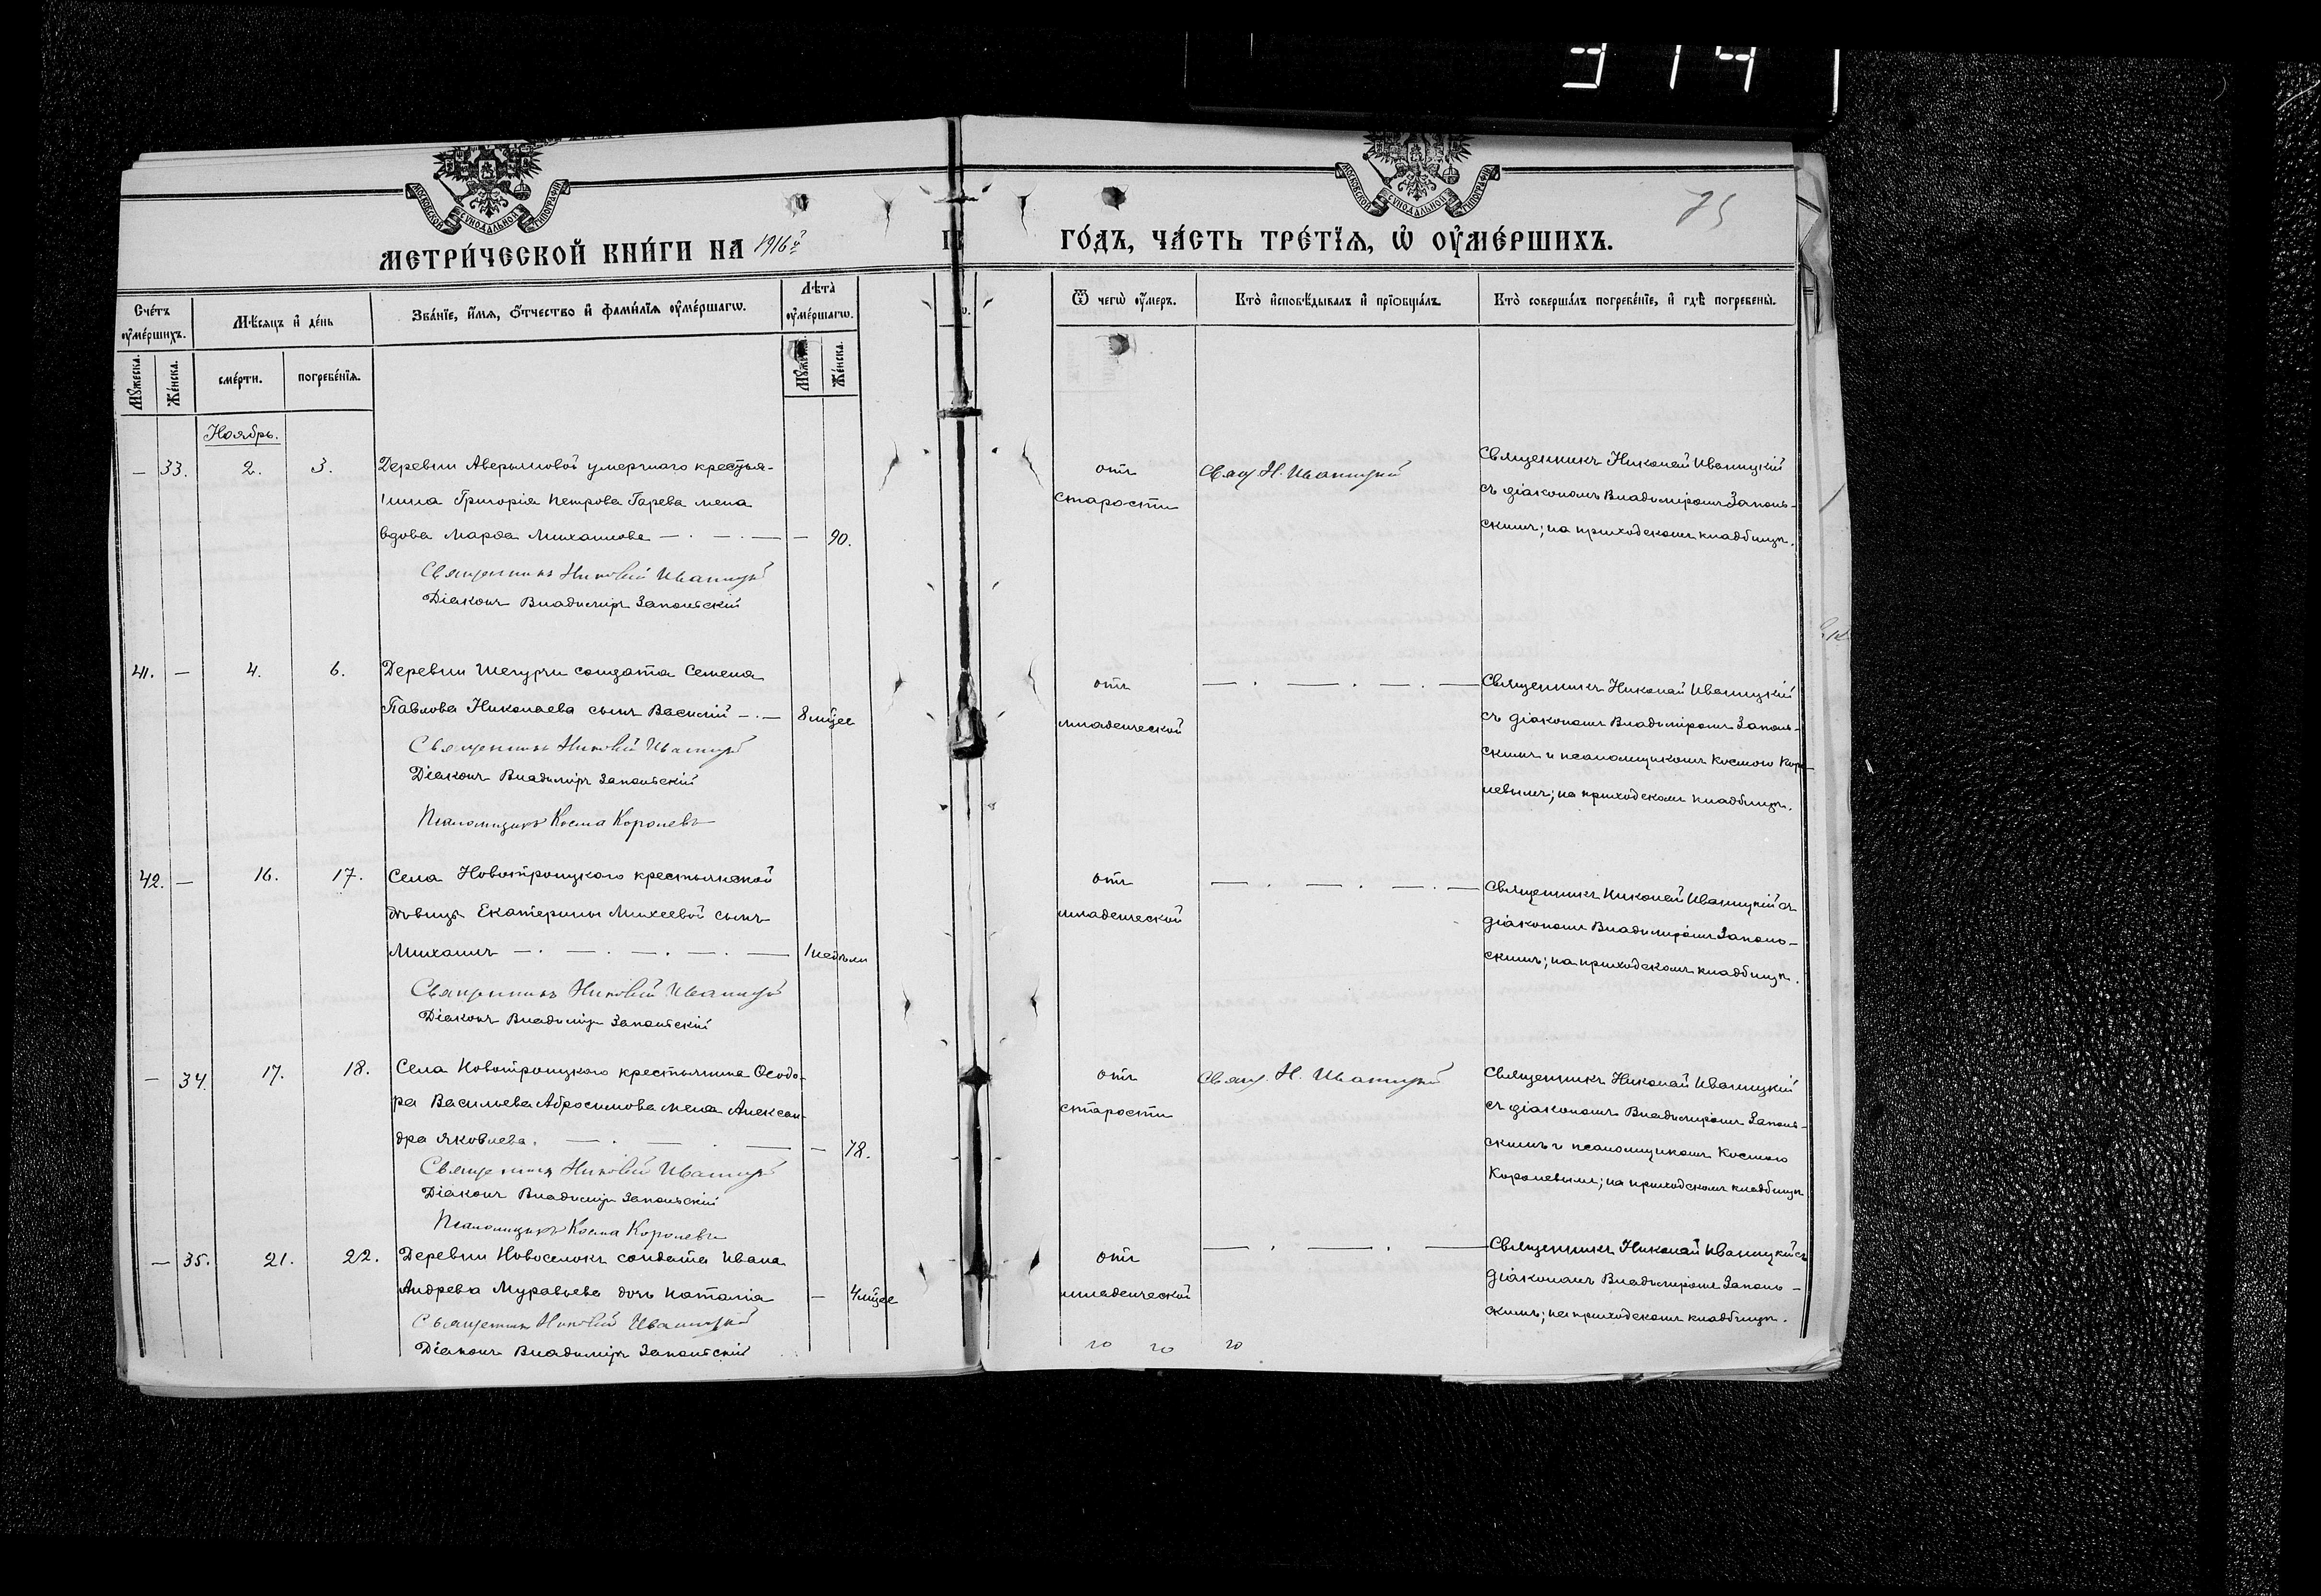 314
75
МОСКОВСКОЙ СѴНОДАЛЬНОЙ ТИПОГРАФІИ
МОСКОВСКОЙ СѴНОДАЛЬНОЙ ТИПОГРАФІИ
МЕТРИ́ЧЕСКОЙ КНИ́ГИ НА 1916й
ГО́ДЪ, ЧА́СТЬ ТРЕ́ТЇѦ, Ѡ҆ ОУ҆МЕ́РШИХЪ.
Сче́тъ оу҆ме́ршихъ.
Мѣ́сяцъ и҆ де́нь
Зва́нїе, и҆́мя, ѻ҆́тчество и҆ фами́лїя оу҆ме́ршагѡ.
Лѣта̀ оу҆ме́ршагѡ.
Ѿ чегѡ̀ оу҆́меръ.
Кто̀ и҆сповѣ́дывалъ и҆ прїѡбща́лъ.
Кто̀ соверша́лъ погребе́нїе, и҆ гдѣ̀ погребены̀.
Мꙋ́жеска.
Же́нска.
сме́рти.
погребе́нїя.
Мꙋ́жеска.
Же́нска.
Ноябрь.
— 33. 2. 3.
Деревни Аверьяновой умершаго крестья-
нина Григорія Петрова Гарева жена
вдова Марѳа Михаилова — . — . — — 90.
Священникъ Николай Иваницкій
Діаконъ Владиміръ Запольскій
отъ
старости
Свящ. Н. Иваницкій
Священникъ Николай Иваницкій
съ діакономъ Владиміромъ Заполь-
скимъ; на приходскомъ кладбищѣ.
41. — 4. 6.
Деревни Шегурчи солдата Семена
Павлова Николаева сынъ Василій — . — 8 мѣс
Священникъ Николай Иваницкій
Діаконъ Владиміръ Запольскій
Псаломщикъ Косма Королевъ
отъ
младенческой
— . — . — . —
Священникъ Николай Иваницкій
съ діакономъ Владиміромъ Заполь-
скимъ и псаломщикомъ Космою Коро-
левымъ; на приходскомъ кладбищѣ.
42. — 16. 17.
Села Новотроицкаго крестьянской
дѣвицы Екатерины Михеевой сынъ
Михаилъ — . — . — . — . — 1 недѣли
Священникъ Николай Иваницкій
Діаконъ Владиміръ Запольскій
отъ
младенческой
— . — . — . —
Священникъ Николай Иваницкій съ
діакономъ Владиміромъ Заполь-
скимъ; на приходскомъ кладбищѣ.
— 34. 17. 18.
Села Новотроицкаго крестьянина Ѳеодо-
ра Васильева Абросимова жена Алексан-
дра Яковлева. — . — . — — 78.
Священникъ Николай Иваницкій
Діаконъ Владиміръ Запольскій
Псаломщикъ Косма Королевъ
отъ
старости
Свящ. Н. Иваницкій
Священникъ Николай Иваницкій
съ діакономъ Владиміромъ Заполь-
скимъ и псаломщикомъ Космою
Королевымъ; на приходскомъ кладбищѣ
— 35. 21. 22.
Деревни Новоселокъ солдата Ивана
Андрева Муравьева дочь Наталія — 4 мѣс
Священникъ Николай Иваницкій
Діаконъ Владиміръ Запольскій
отъ
младенческой
— . — . —
Священникъ Николай Иваницкій съ
діакономъ Владиміромъ Заполь-
скимъ; на приходскомъ кладбищѣ.